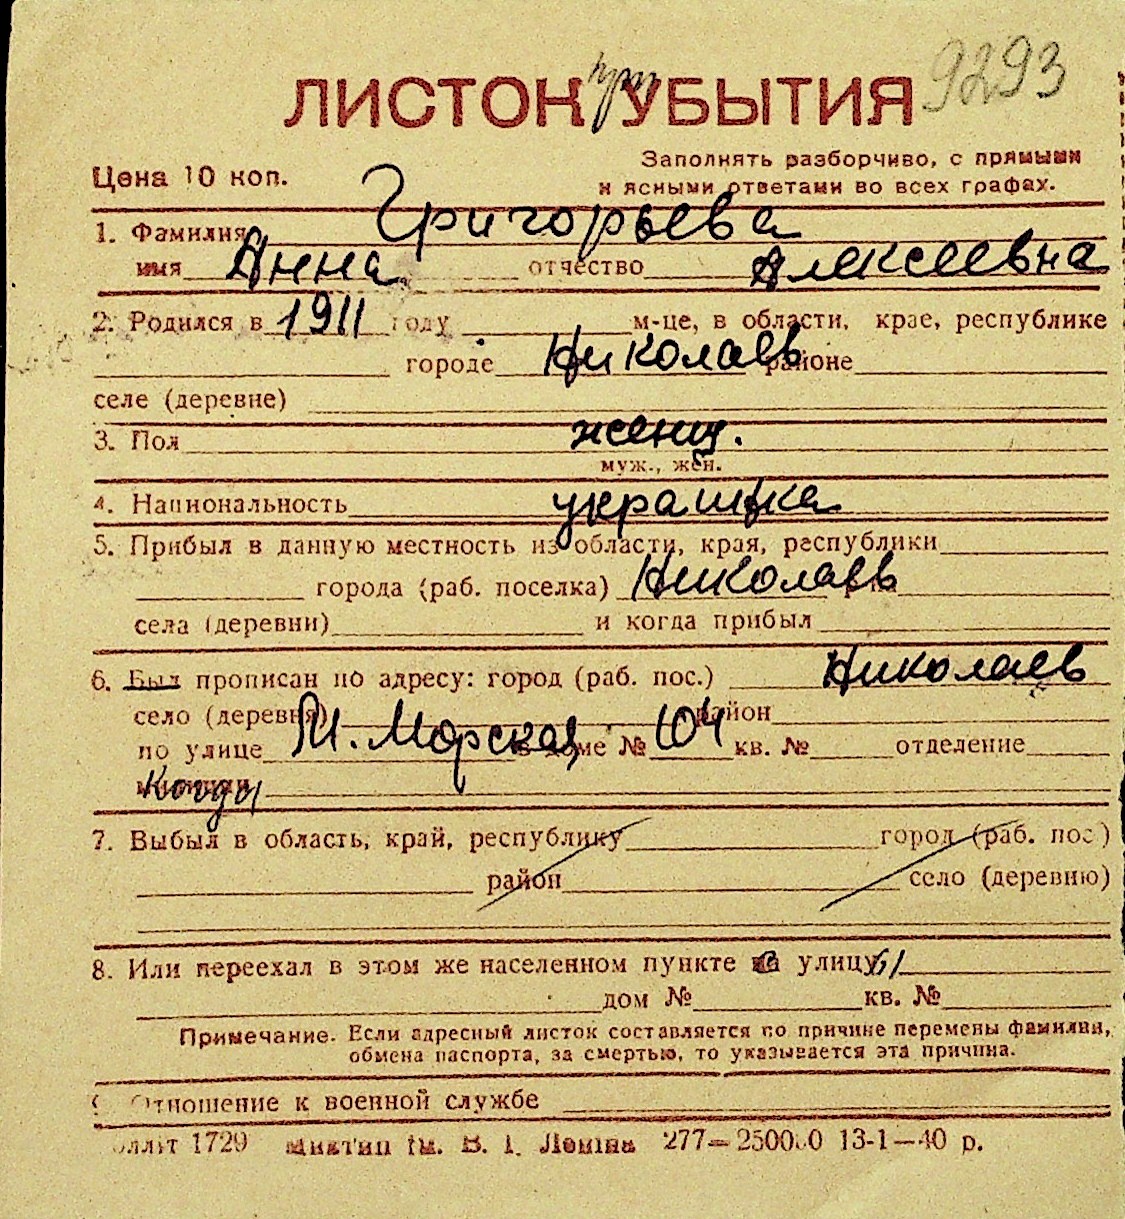 9293
при
ЛИСТОК УБЫТИЯ
Заполнять разборчиво, с прямыми
Цена 10 коп.
и ясными ответами во всех графах.
1. Фамилия Григорьева
имя Анна отчество Алексеевна
2. Родился в 1911 году м-це, в области, крае, республике
городе Николаев районе
селе (деревне)
3. Пол женщ.
муж., жен.
4. Национальность украинка
5. Прибыл в данную местность из области, края, республики
города (раб. поселка) Николаев
села (деревни) и когда прибыл
6. Был прописан по адресу: город (раб. пос.) Николаев
село (деревня) район
по улице М. Морская в доме № 104 кв. № отделение
милиции
7. Выбыл в область, край, республику город (раб. пос)
район село (деревню)
8. Или переехал в этом же населенном пункте с улицы
дом № кв. №
Примечание. Если адресный листок составляется по причине перемены фамилии,
обмена паспорта, за смертью, то указывается эта причина.
Отношение к военной службе
1729 Ленина 277— 13-1—40 р.